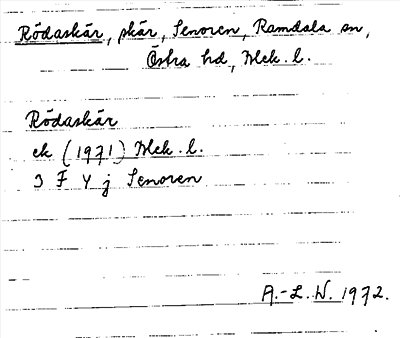 Rödaskär, skär, Senoren, Ramdala sn,
Östra hd, Blek. l.
Rödaskär
ek (1971) Blek. l.
3 F 4 j Senoren
A.-L. W. 1972.